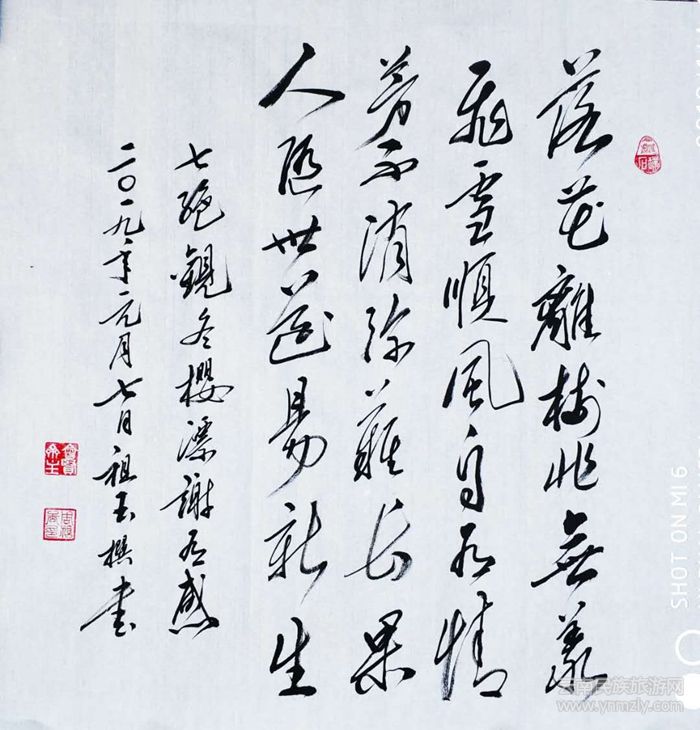 落花離樹非無義
飛雪順風自有情
芳不消弥難長果
人隨世道易新生
七絶觀冬櫻漂謝有感
二〇一九年元月七日祖玉撰書
SHOT ON MI 6
云南民族旅游网
www.ynmzly.com